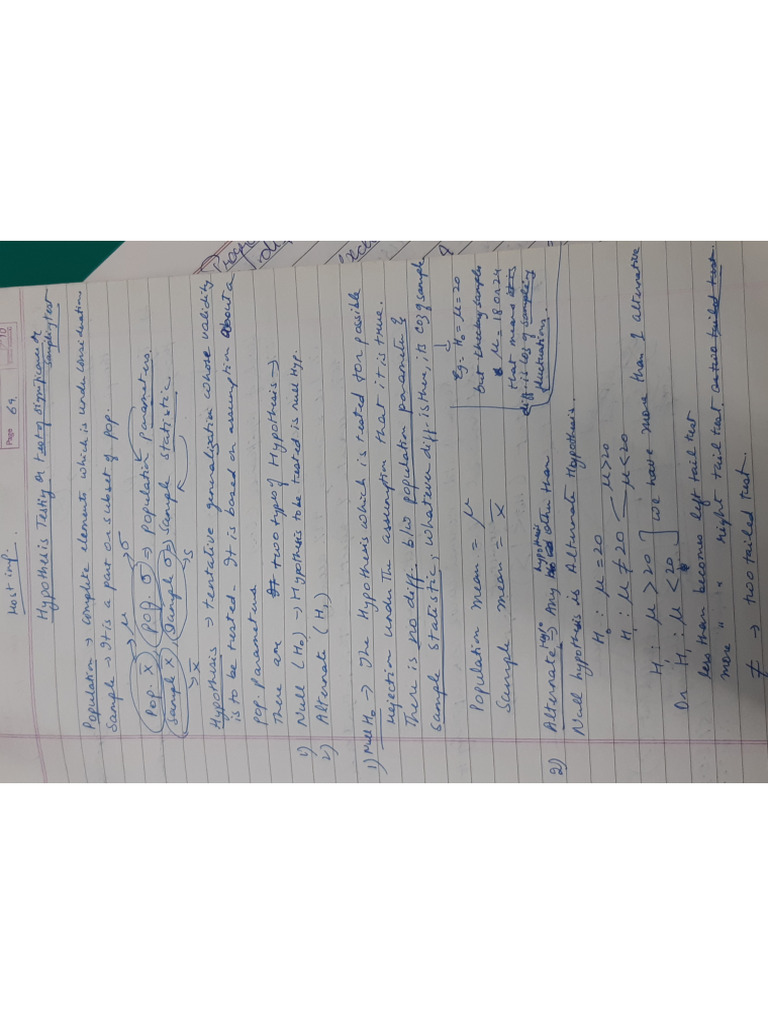 Page 69
Most imp.
Hypothesis Testing or Test of significance or
sampling test
Population → complete elements which is under consideration.
Sample → It is a part or subset of pop.
→ μ → σ
Pop. X̄ pop. σ ⇒ Population parameters.
Sample X̄ Sample σ ⇒ Sample statistic
→ x̄ → s
Hypothesis → tentative generalization whose validity
is to be tested. It is based on assumption about a
pop parameters
There are two types of Hypothesis →
1) Null (H₀) → Hypothesis to be tested is null Hyp.
2) Alternate (H₁)
1) Null H₀ → The Hypothesis which is tested for possible
rejection under the assumption that it is true.
There is no diff. b/w population parameter &
sample statistic, whatever diff. is then, its coz of sample
Eg - H₀ = μ = 20
but checking samples
μ = 18 or 24
that means
diff. is coz of sampling
fluctuations.
Population mean = μ
Sample mean = x̄
2) Alternate Hypo ⇒ Any hypothesis other than
Null hypothesis is Alternate Hypothesis.
H₀ : μ = 20
H₁ : μ ≠ 20 μ > 20 μ < 20
H₁ : μ > 20
Or H₁ : μ < 20 ] we have more than 1 alternative
less than becomes left tail test
more " " right tail test
≠ → two tailed test.